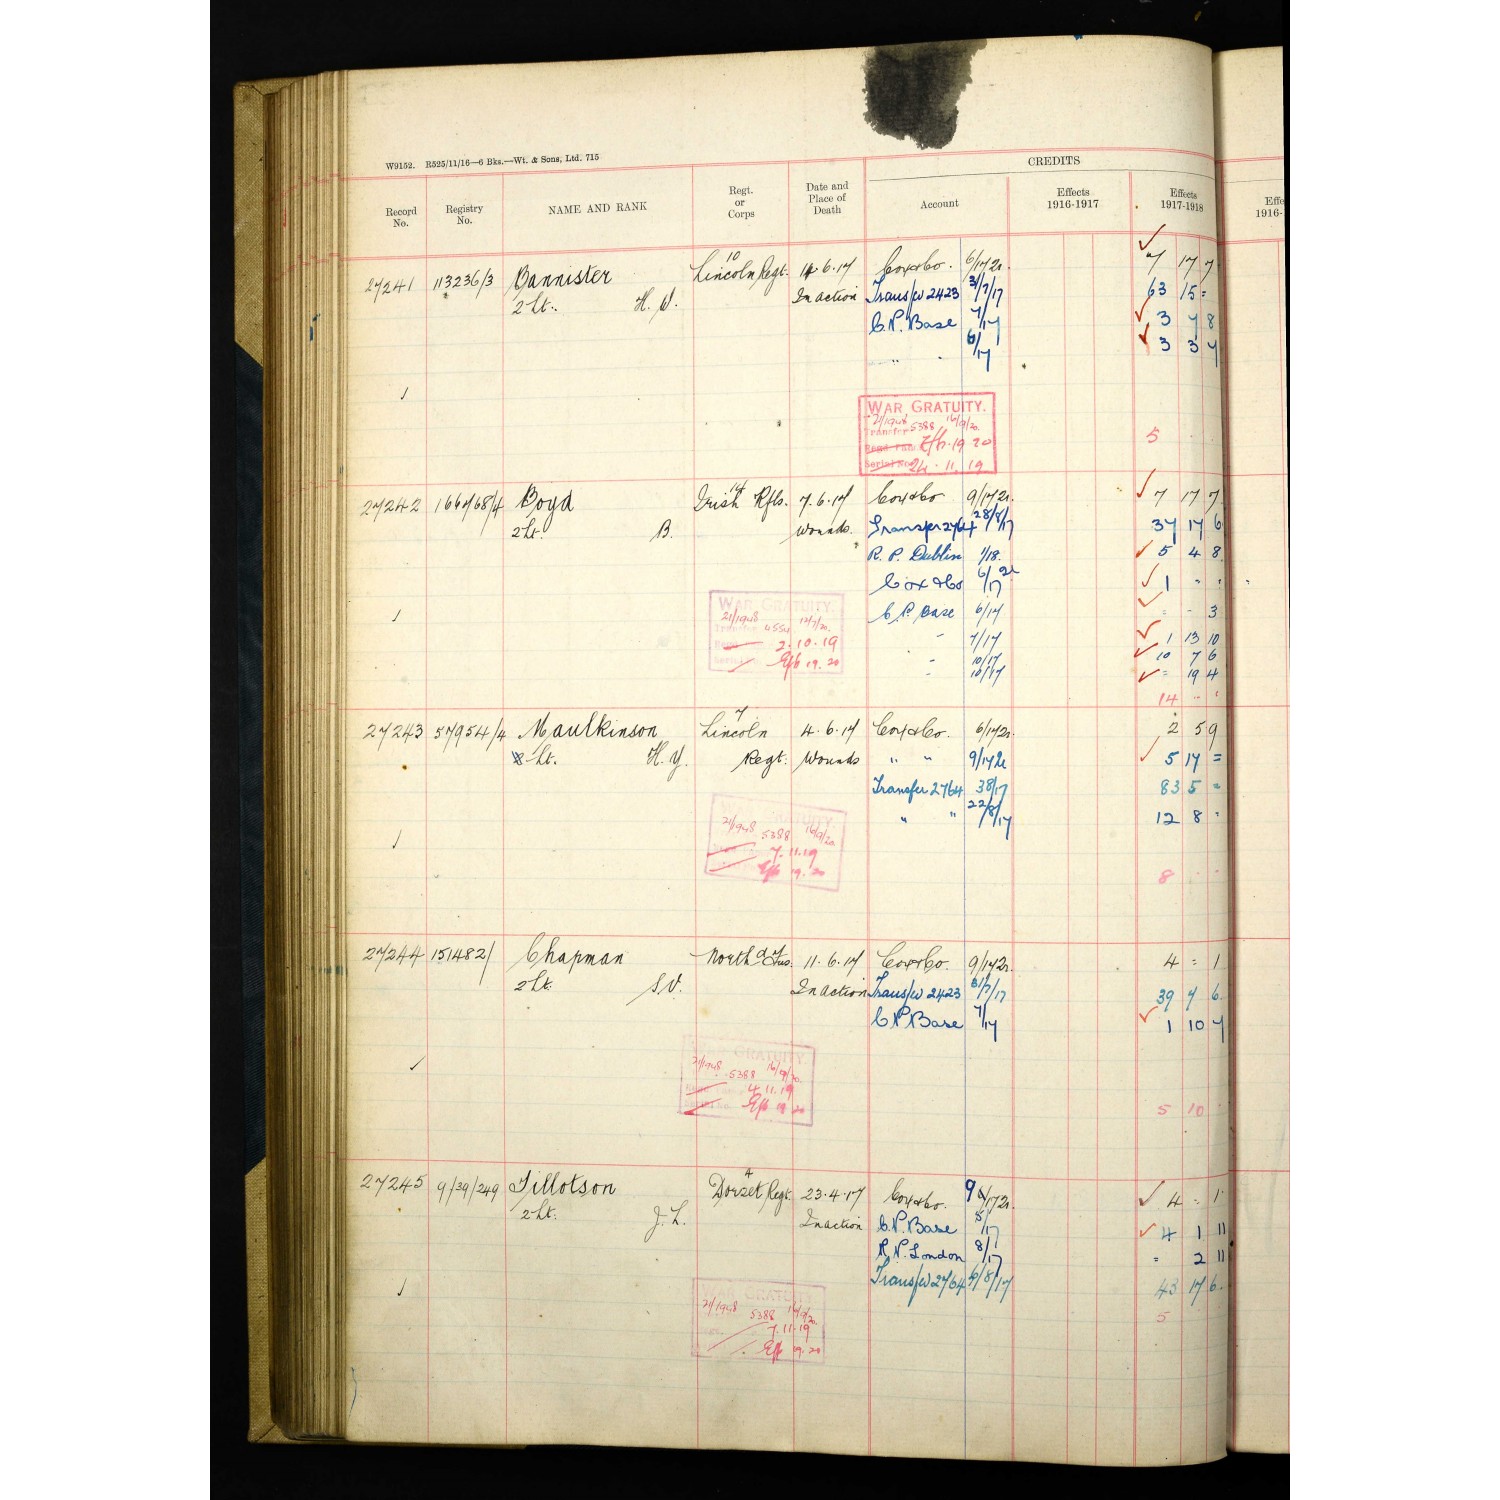 W9152. R525/11/16—6 Bks.—Wt. & Sons, Ltd. 715
CREDITS
Record No.
Registry No.
NAME AND RANK
Regt. or Corps
Date and Place of Death
Account
Effects 1916-1917
Effects 1917-1918
Effe
1916-
10
27241 113236/3 Bannister Lincoln Regt. 11.6.17 Cox & Co. 6/17 2r. 7 17 7
2 Lt. H. W. In action Transfer 2423 31/7/17 63 15 =
C.P. Base 7/17 3 7 8
" " 6/17 3 3 7
WAR GRATUITY.
21/1948 5388 16/9/20.
Transfer
Eff. 19 20
Serial No. 24.11.19
5
14
27242 166768/4 Boyd Irish Rfls. 7.6.17 Cox & Co 9/17 2r. 7 17 7
2 Lt. B. Wounds. Transfer 2764 28/8/17 37 17 6
R. P. Dublin 1/18. 5 4 8
Cox & Co 6/17 2r 1 " "
C.P. Base 6/17 = - 3
" 7/17 1 13 10
" 10/17 10 7 6
" 10/17 = 19 4
14
WAR GRATUITY.
21/1948 4554 12/7/20.
Transfer
2.10.19
Serial Eff. 19.20
7
27243 57954/4 Maulkinson Lincoln 4.6.17 Cox & Co. 6/17 2r. 2 5 9
Lt. H. Y. Regt. Wounds " " 9/17 2r 5 17 =
Transfer 2764 38/17 83 5 =
" " 22/8/17 12 8 "
21/1948 5388 16/9/20.
7.11.19
Eff. 19.20
8
27244 151482/ Chapman North'd Fus. 11.6.17 Cox & Co. 9/17 2r. 4 = 1
2 Lt. S.V. In action Transfer 2423 31/7/17 39 7 6
C.P. Base 7/17 1 10 7
WAR GRATUITY.
21/1948 5388 16/9/20.
4.11.19
Eff. 19 20
5 10
4
27245 9/39/249 Tillotson Dorset Regt. 23.4.17 Cox & Co. 9/17 2r. 4 = 1
2 Lt. J. L. In action C.P. Base 5/17 4 1 11
R.P. London 8/17 = 2 11
Transfer 2764 9/8/17 43 17 6
WAR GRATUITY
21/1948 5388 16/9/20.
7.11.19
Eff. 19.20
5